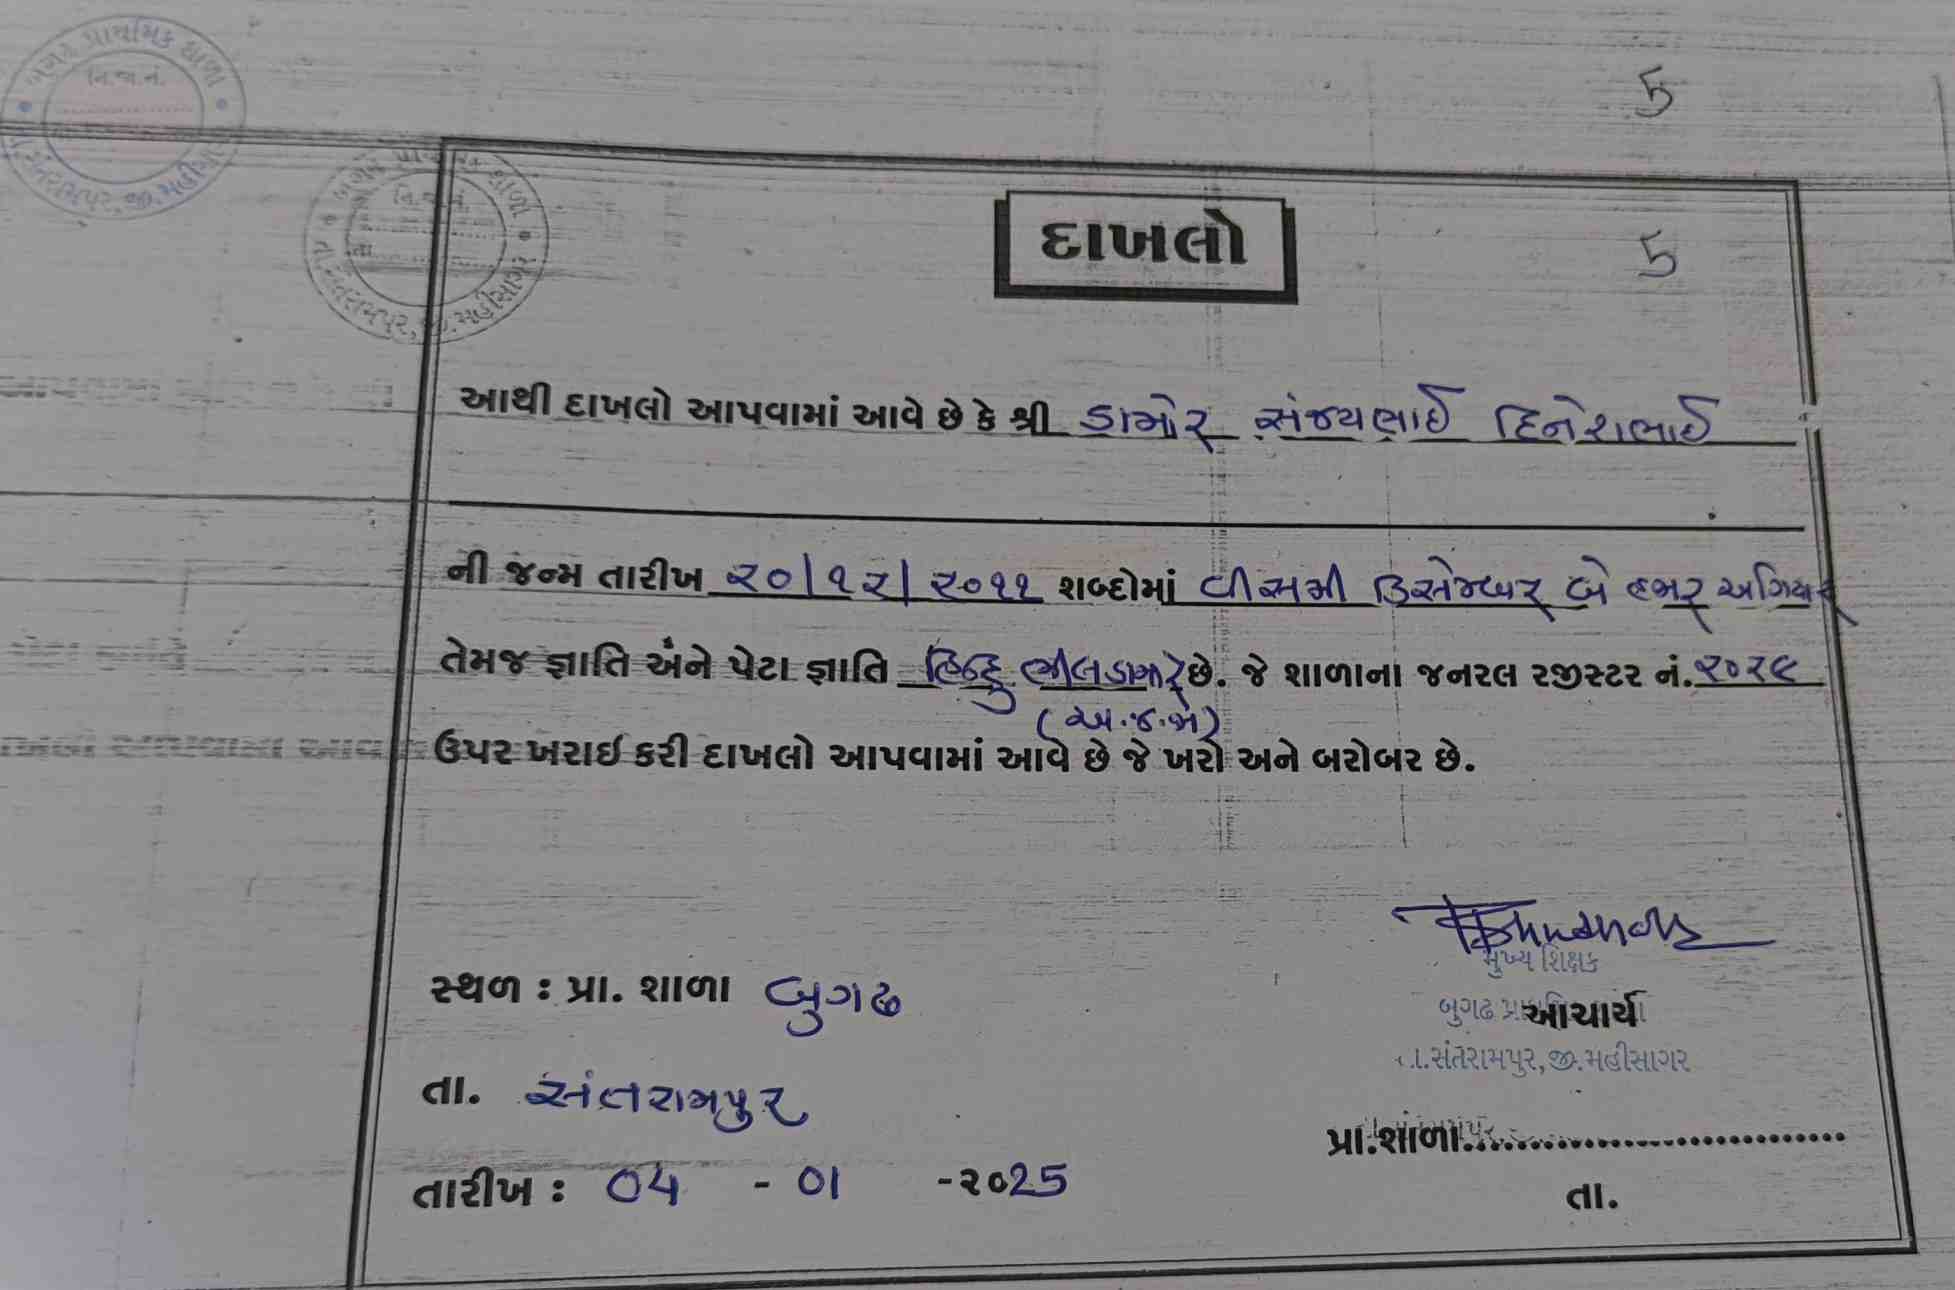 બુગઢ પ્રાથમિક શાળા
નિ.જા.નં.
તા.સંતરામપુર, જી.મહીસાગર
બુગઢ પ્રાથમિક શાળા
નિ.જા.નં.
તા.
તા.સંતરામપુર, જી.મહીસાગર
5
5
દાખલો
આથી દાખલો આપવામાં આવે છે કે શ્રી ડામોર સંજયભાઈ દિનેશભાઈ
ની જન્મ તારીખ ૨૦/૧૨/૨૦૧૧ શબ્દોમાં વીસમી ડિસેમ્બર બે હજાર અગિયાર
તેમજ જ્ઞાતિ અંને પેટા જ્ઞાતિ હિન્દુ ભીલડામોર છે. જે શાળાના જનરલ રજીસ્ટર નં. ૨૦૨૯
(અ.જ.જા)
ઉપર ખરાઇ કરી દાખલો આપવામાં આવે છે જે ખરો અને બરોબર છે.
મુખ્ય શિક્ષક
સ્થળ : પ્રા. શાળા બુગઢ
બુગઢ આચાર્ય
તા.સંતરામપુર, જી.મહીસાગર
તા. સંતરામપુર
પ્રા.શાળા..............................
તારીખ : 04 - 01 -૨૦25
તા.